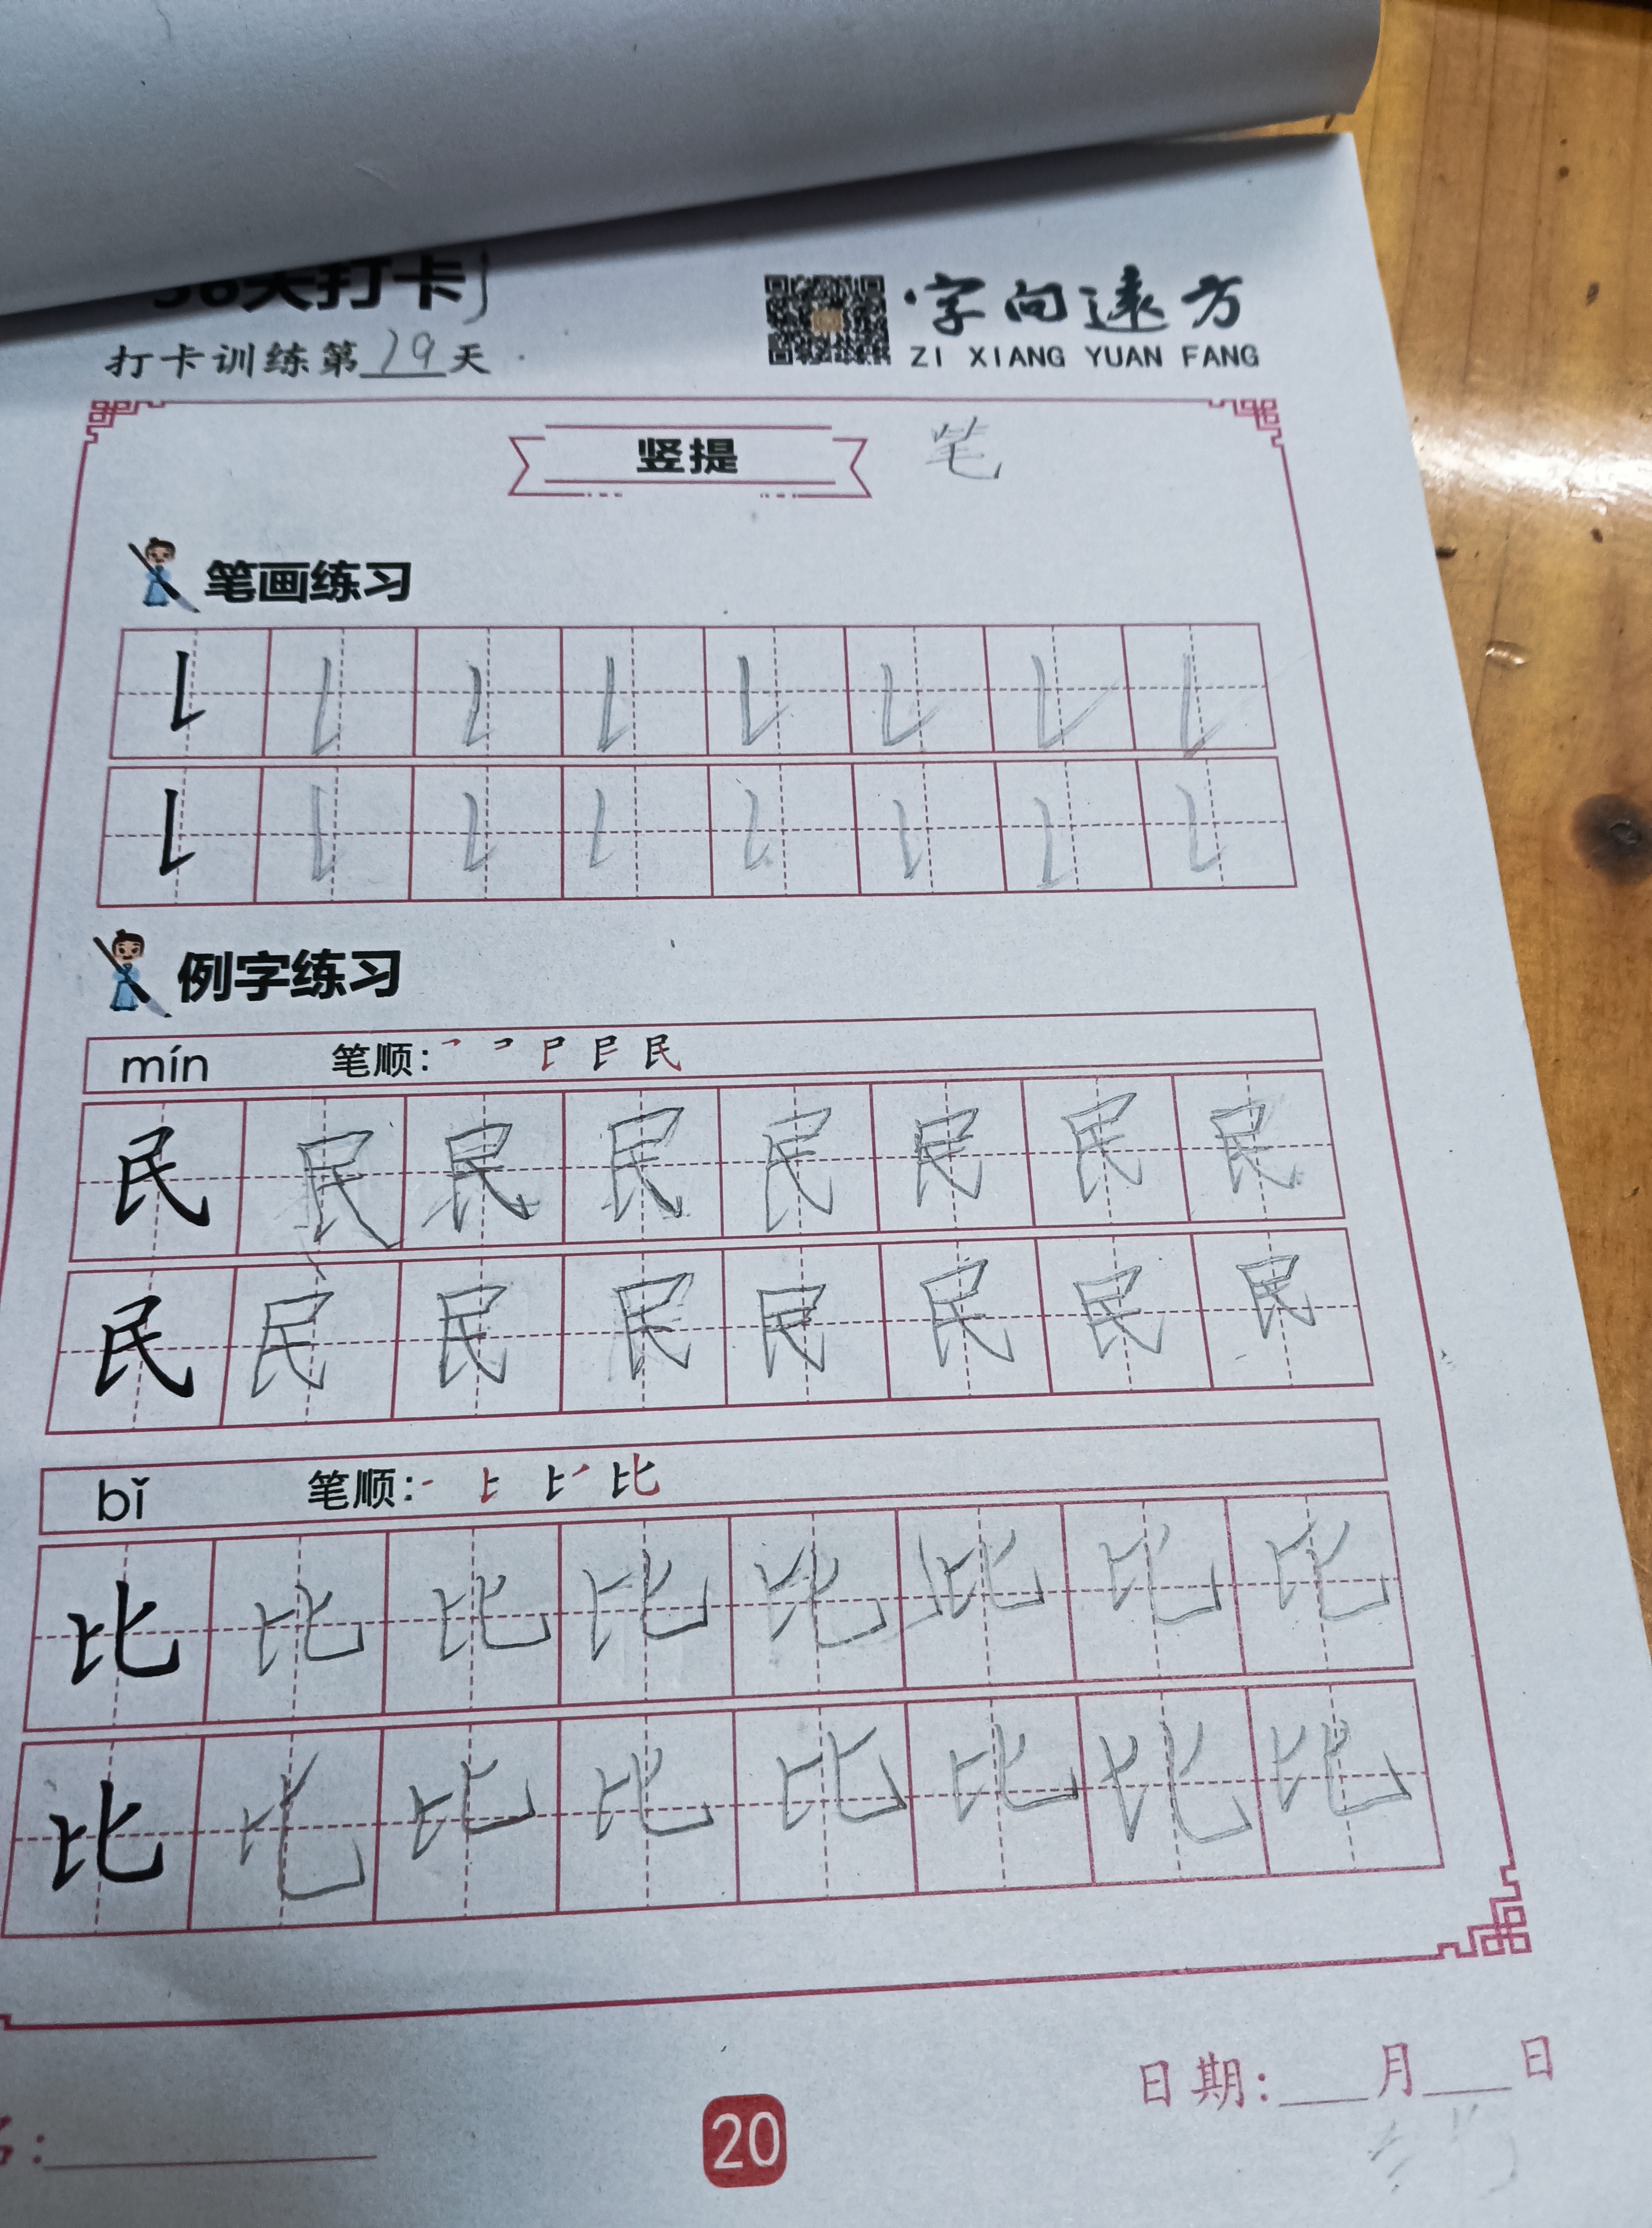 天打卡
字向远方
打卡训练第19天
ZI XIANG YUAN FANG
竖提 笔
笔画练习
例字练习
mín 笔顺:
民 民 民 民 民 民 民 民
民 民 民 民 民 民 民 民
bǐ 笔顺:
比 比 比 比 比 比 比 比
比 比 比 比 比 比 比 比
日期:___月___日
名:
20